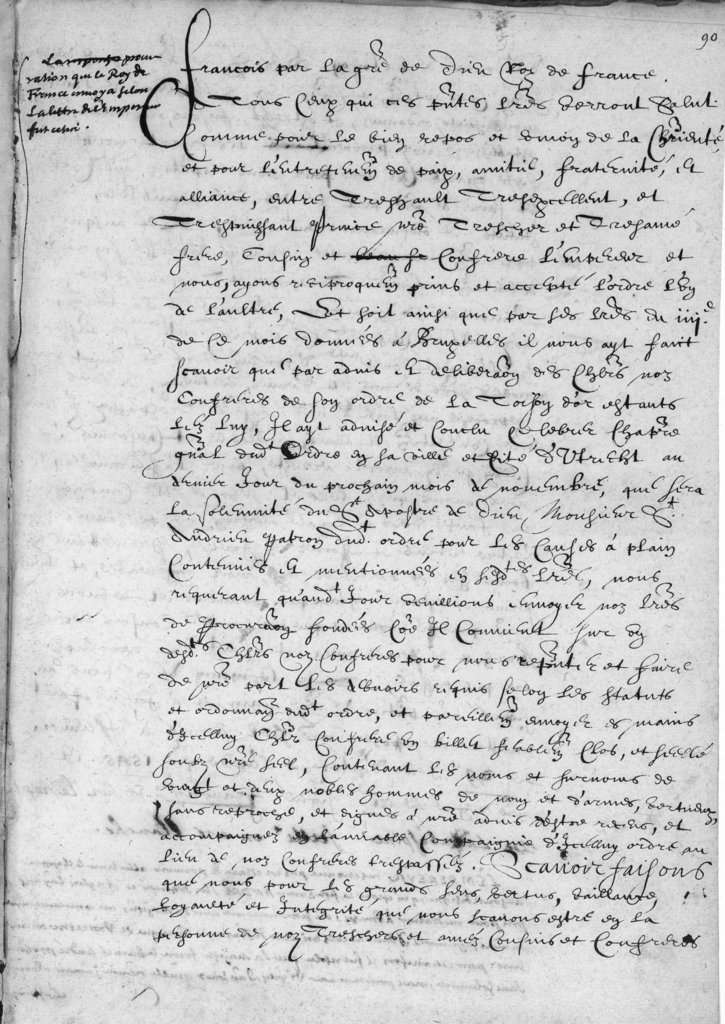 90
La responce procu-
ration que le Roy de
France envoya selon
La lettre de l'Empereur
fut cecy.
francois par la gre de Dieu Roy de france.
A Tous Ceux qui ces pntes lres verront Salut
Comme pour le bien repos et union de la Chrienté
et pour l'entretenem de paix, amitié, fraternité, et
alliance, entre Treshault Tresexcellent, et
Trespuissant Prince nre Trescher et Tresamé
frere, Cousin et Confrere l'empereur et
nous, ayons reciproquem prins et accepté l'ordre l'un
de l'aultre, Et soit ainsi que par ses lres du iiij.e
de Ce mois données à Bruxelles il nous ayt faict
scavoir que par advis et deliberaon des Chlrs noz
Confreres de son ordre de la Toison d'or estants
lez luy, Il ayt advisé et Conclu Celebrer Chapre
gnal dudt Ordre en sa ville et Cité d'Utrecht au
dernier Jour du prochain mois de novembre, que sera
la solemnité du St Apostre de Dieu Monsieur St
Andrieu patron dudt ordre pour les Causes à plain
Contenues et mentionnées en sesdtes lres, nous
requerant quaudt Jour veuillions envoyer noz lres
de Procuraon fondées Coe Il Convient sur un
desdts Chlrs noz Confreres pour nous repnter et faire
de nre part les debvoirs requis selon les statuts
et ordonnan dudt ordre, et pareillem envoyer es mains
d'Icelluy Chlr Confrere un billet feablem Clos, et scellé
soubz nre seel, Contenant les noms et surnoms de
vingt et deux nobles hommes de nom et d'armes, vertueux
sans reproche, et dignes à nre advis d'estre receus, et
accompaignez en l'amiable Compaignie d'Icelluy ordre au
lieu de noz Confreres trespassez. Scavoir faisons
que nous pour les grands sens, vertus, vaillance,
loyaulté et Integrité que nous scavons estre en la
personne de noz Treschers et amez Cousins et Confreres